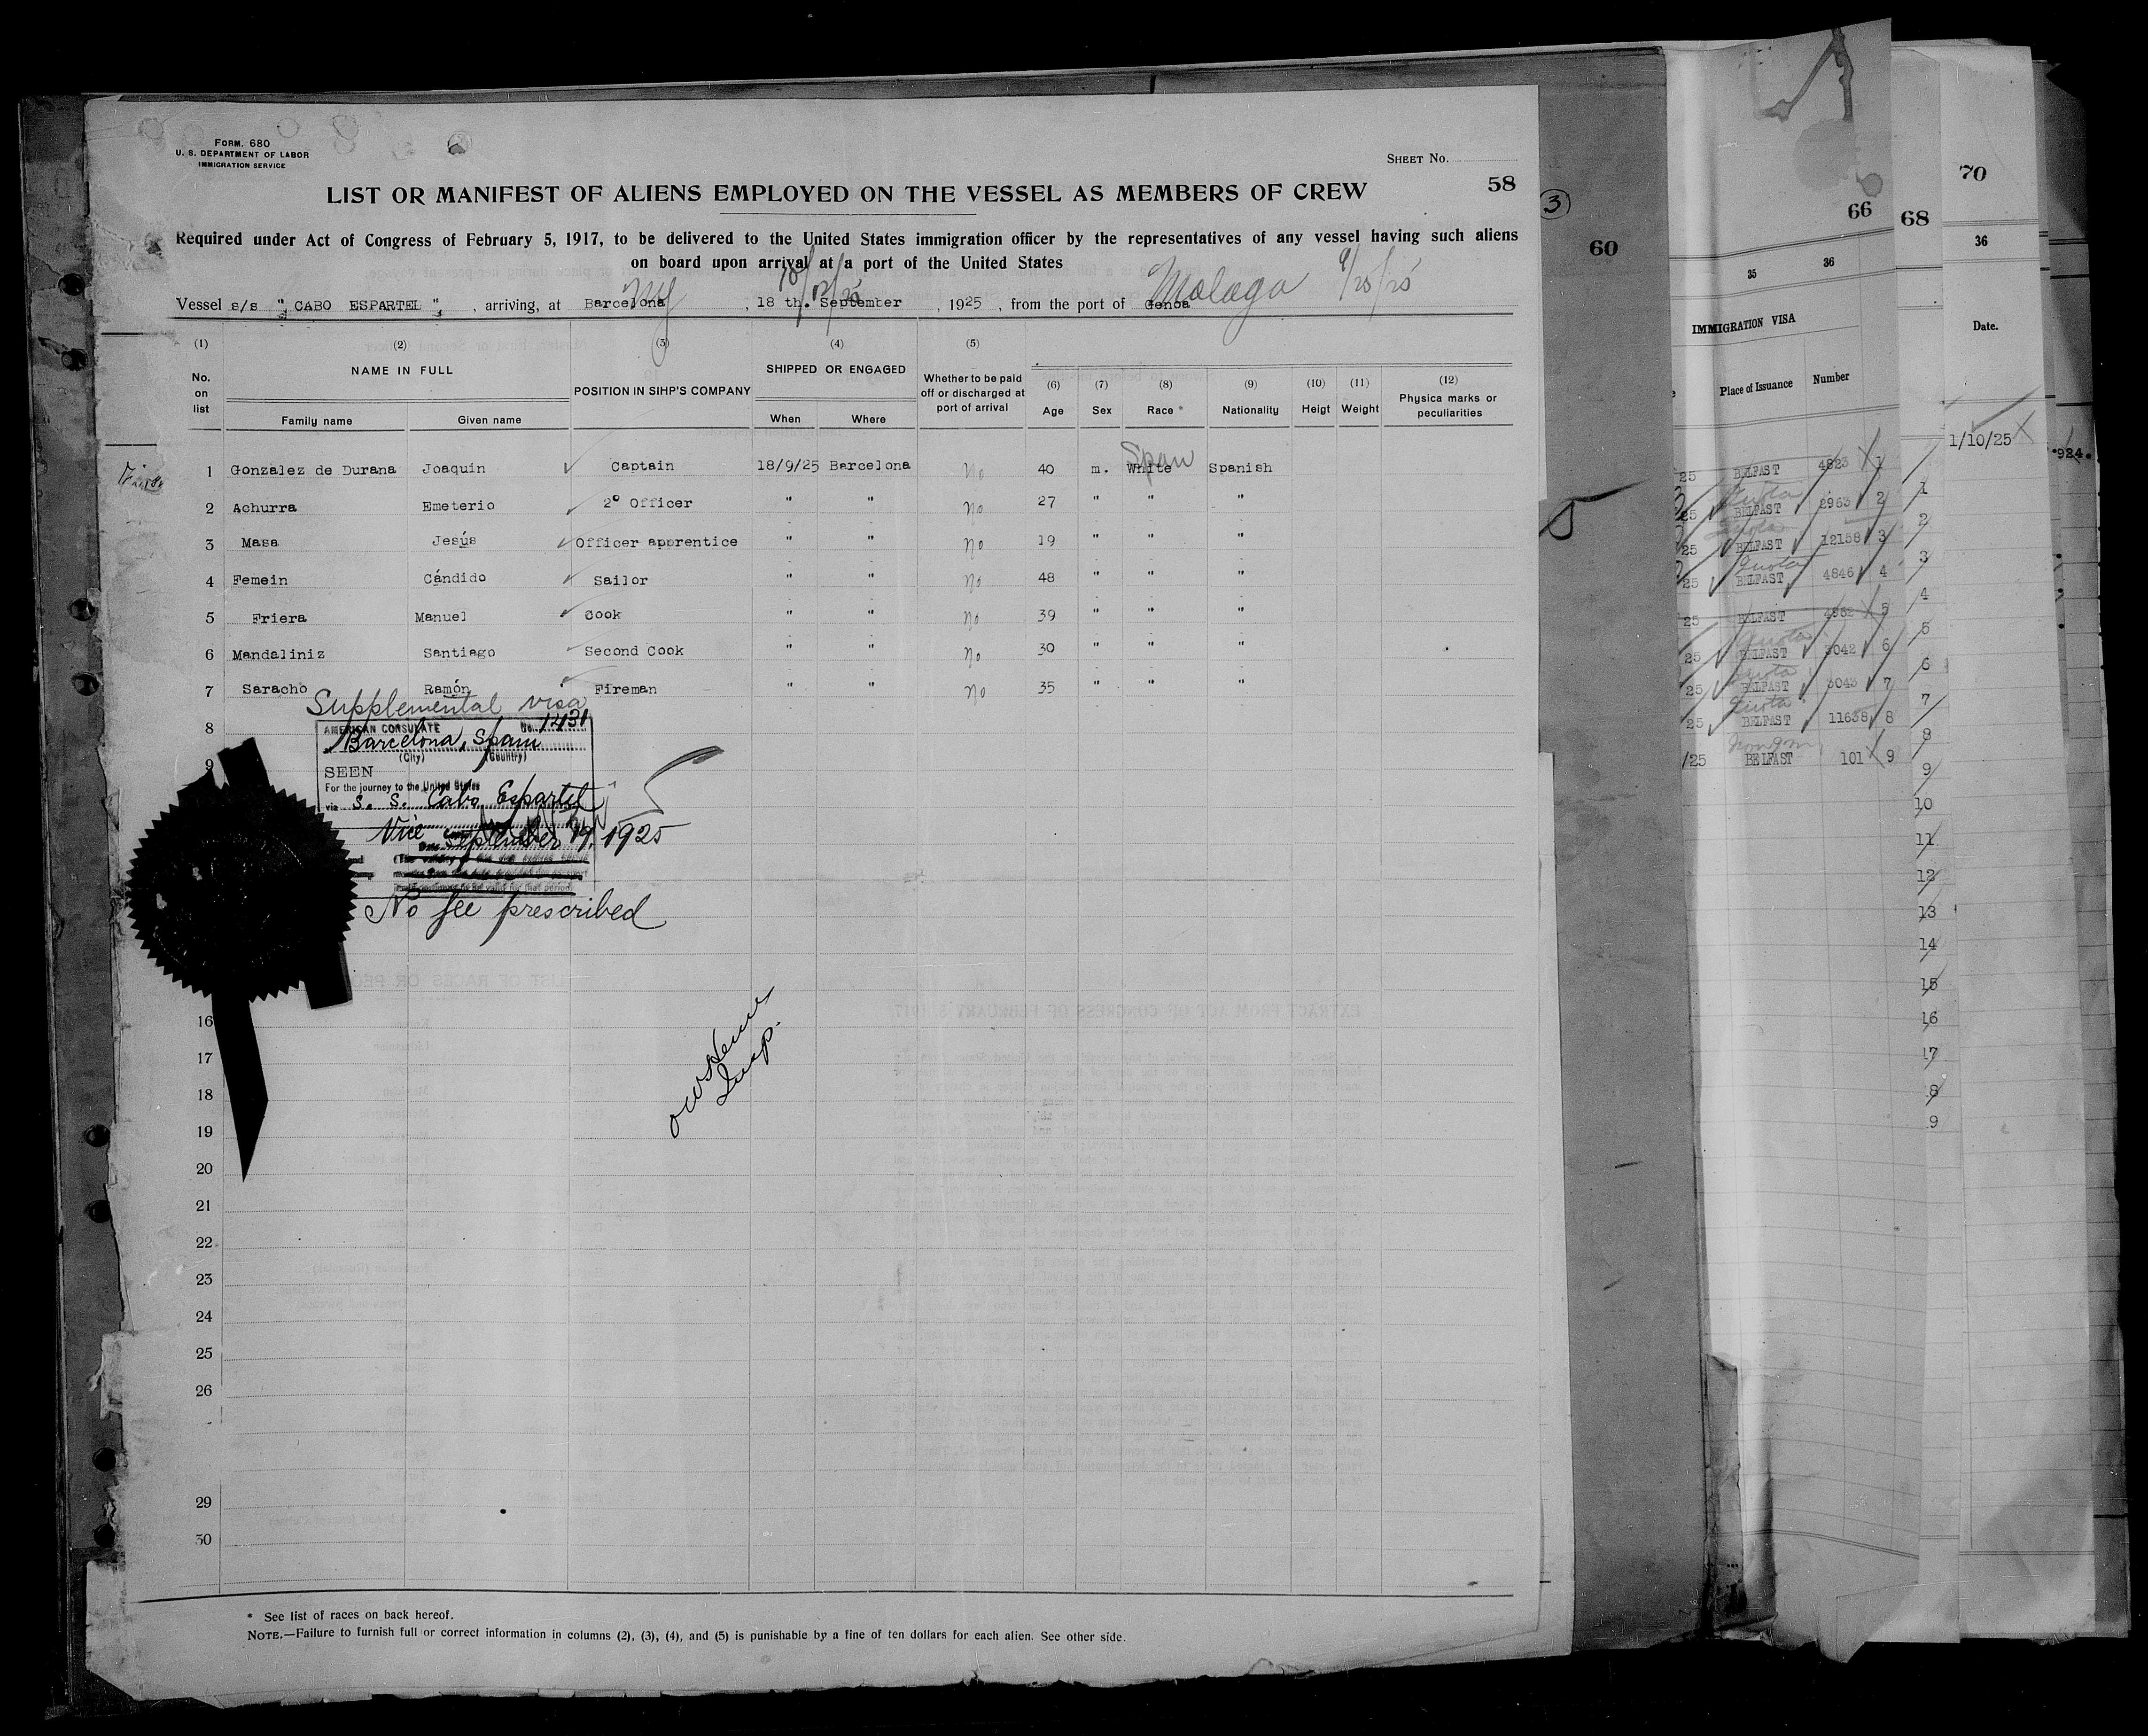 FORM. 680
U. S. DEPARTMENT OF LABOR
IMMIGRATION SERVICE
SHEET No.
58
LIST OR MANIFEST OF ALIENS EMPLOYED ON THE VESSEL AS MEMBERS OF CREW
Required under Act of Congress of February 5, 1917, to be delivered to the United States immigration officer by the representatives of any vessel having such aliens
on board upon arrival at a port of the United States
NY 10/12/25 Malaga 9/25/25
Vessel s/s " CABO ESPARTEL ", arriving, at Barcelona, 18 th. September, 1925, from the port of Genoa
(1) (2) (3) (4) (5)
No. on list NAME IN FULL POSITION IN SIHP'S COMPANY SHIPPED OR ENGAGED Whether to be paid off or discharged at port of arrival (6) Age (7) Sex (8) Race * (9) Nationality (10) Heigt (11) Weight (12) Physica marks or peculiarities
Family name Given name When Where
Span
1 Gonzalez de Durana Joaquin Captain 18/9/25 Barcelona No 40 m. White Spanish
2 Achurra Emeterio 2º Officer " " No 27 " " "
3 Masa Jesús Officer apprentice " " No 19 " " "
4 Femein Cándido Sailor " " No 48 " " "
5 Friera Manuel Cook " " No 39 " " "
6 Mandaliniz Santiago Second Cook " " No 30 " " "
7 Saracho Ramón Fireman " " No 35 " " "
Supplemental visa
8
AMERICAN CONSULATE No. 1431
Barcelona, Spain
(City) (Country)
9
SEEN
For the journey to the United States
via S. S. Cabo Espartel
Vice
Date September 19, 1925
No fee prescribed
16
17
18
19
20
21
22
23
24
25
26
29
30
Insp.
* See list of races on back hereof.
NOTE.—Failure to furnish full or correct information in columns (2), (3), (4), and (5) is punishable by a fine of ten dollars for each alien. See other side.
3
60
66
35 36
IMMIGRATION VISA
Place of Issuance Number
25 BELFAST 4823 1
25 BELFAST 2963 2
25 BELFAST 12158 3
25 BELFAST 4846 4
25 BELFAST 5
25 BELFAST 3042 6
25 BELFAST 3043 7
25 BELFAST 11638 8
/25 BELFAST 101 9
68
1
2
3
4
5
6
7
8
9
10
11
12
13
14
15
16
17
8
9
70
36
Date.
1/10/25
924.